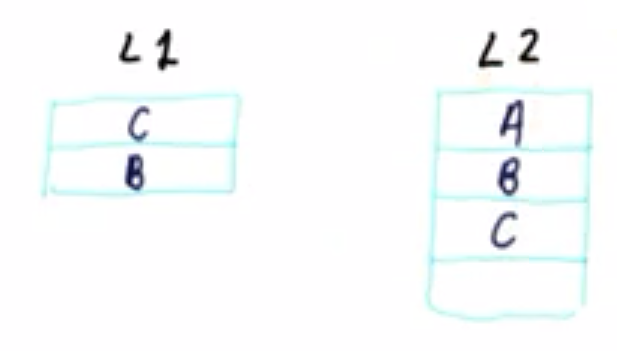 L1
C
B
L2
A
B
C